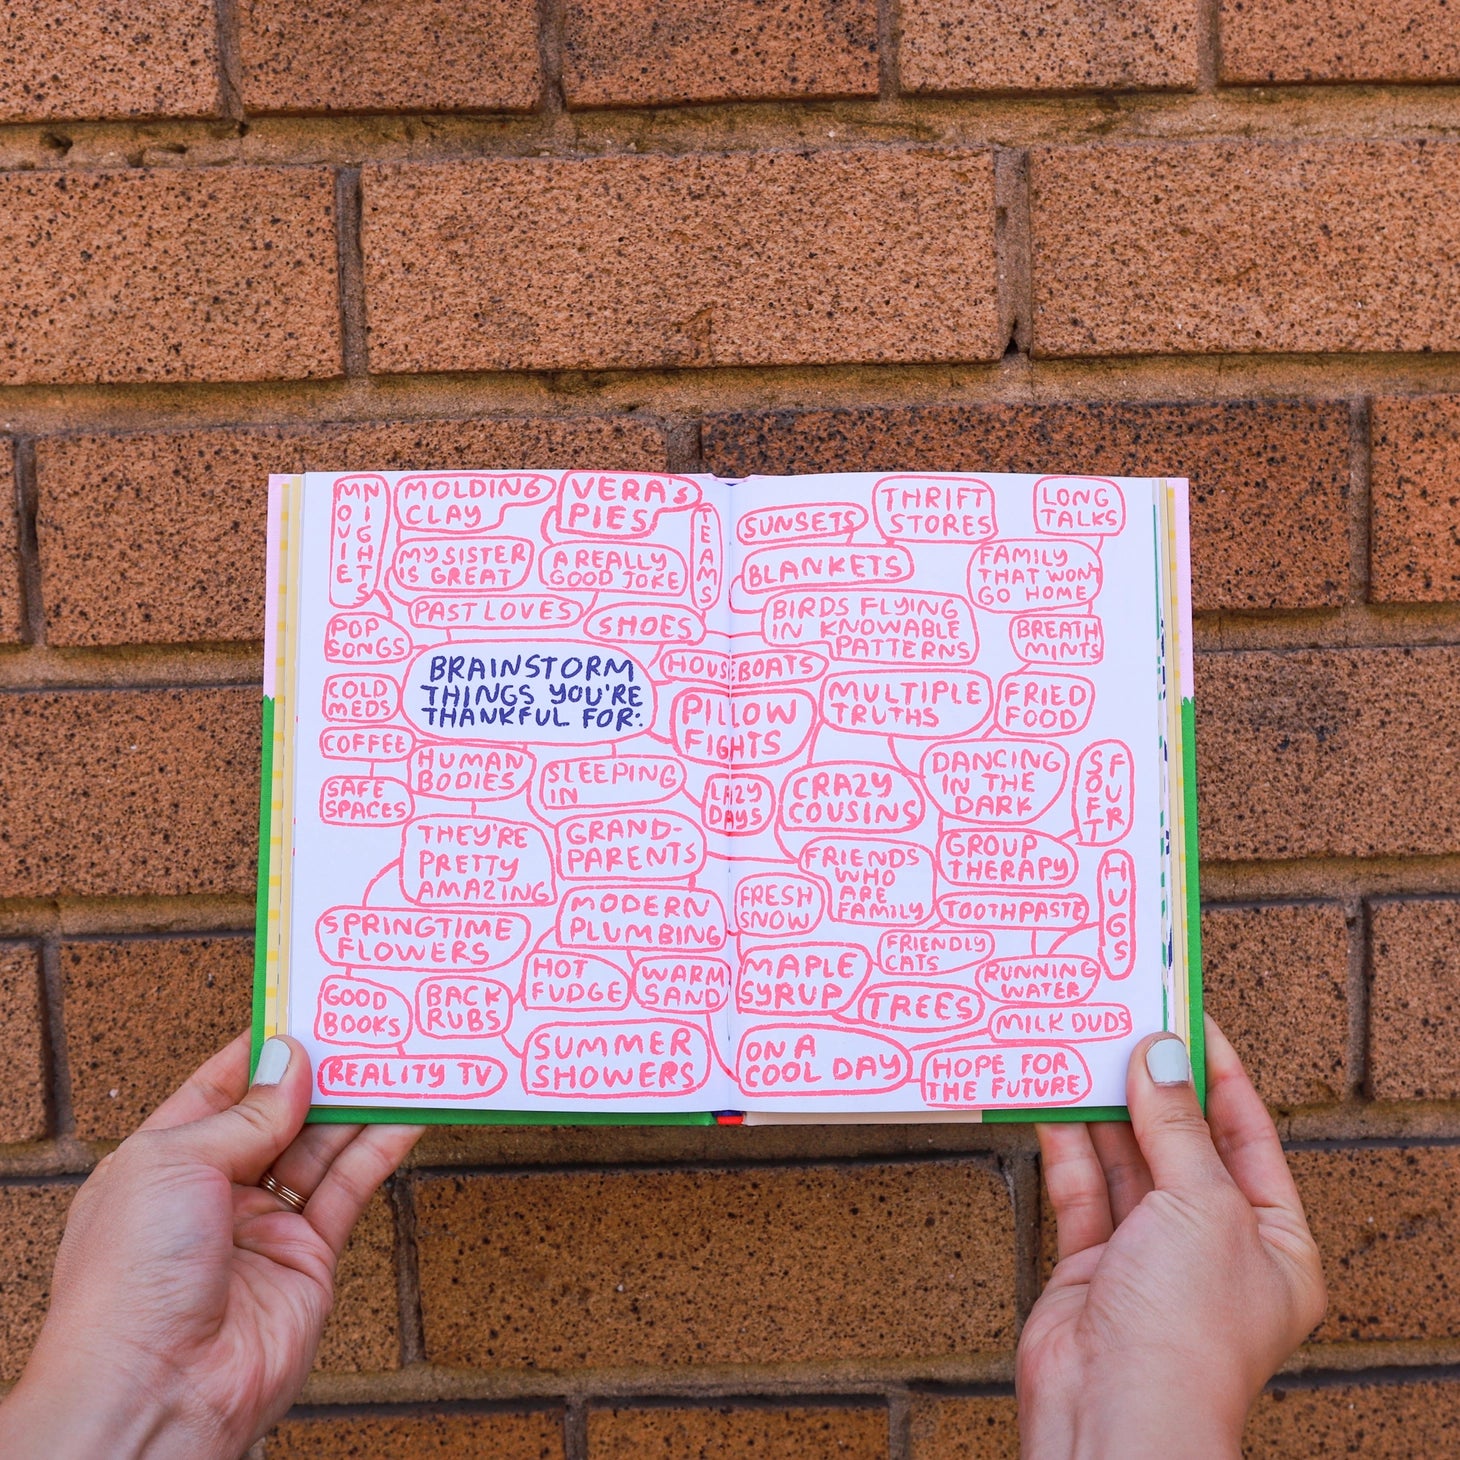 MOVIE
NIGHTS
MOLDING
CLAY
VERA'S
PIES
TEAMS
MY SISTER
IS GREAT
A REALLY
GOOD JOKE
PAST LOVES
SHOES
POP
SONGS
BRAINSTORM
THINGS YOU'RE
THANKFUL FOR:
COLD
MEDS
COFFEE
HUMAN
BODIES
SAFE
SPACES
SLEEPING
IN
THEY'RE
PRETTY
AMAZING
GRAND-
PARENTS
SPRINGTIME
FLOWERS
MODERN
PLUMBING
GOOD
BOOKS
BACK
RUBS
HOT
FUDGE
WARM
SAND
REALITY TV
SUMMER
SHOWERS
SUNSETS
THRIFT
STORES
LONG
TALKS
BLANKETS
FAMILY
THAT WON'T
GO HOME
BIRDS FLYING
IN KNOWABLE
PATTERNS
BREATH
MINTS
HOUSEBOATS
PILLOW
FIGHTS
MULTIPLE
TRUTHS
FRIED
FOOD
LAZY
DAYS
CRAZY
COUSINS
DANCING
IN THE
DARK
SOFT
FUR
FRIENDS
WHO
ARE
FAMILY
GROUP
THERAPY
HUGS
FRESH
SNOW
TOOTHPASTE
FRIENDLY
CATS
MAPLE
SYRUP
RUNNING
WATER
TREES
MILK DUDS
ON A
COOL DAY
HOPE FOR
THE FUTURE